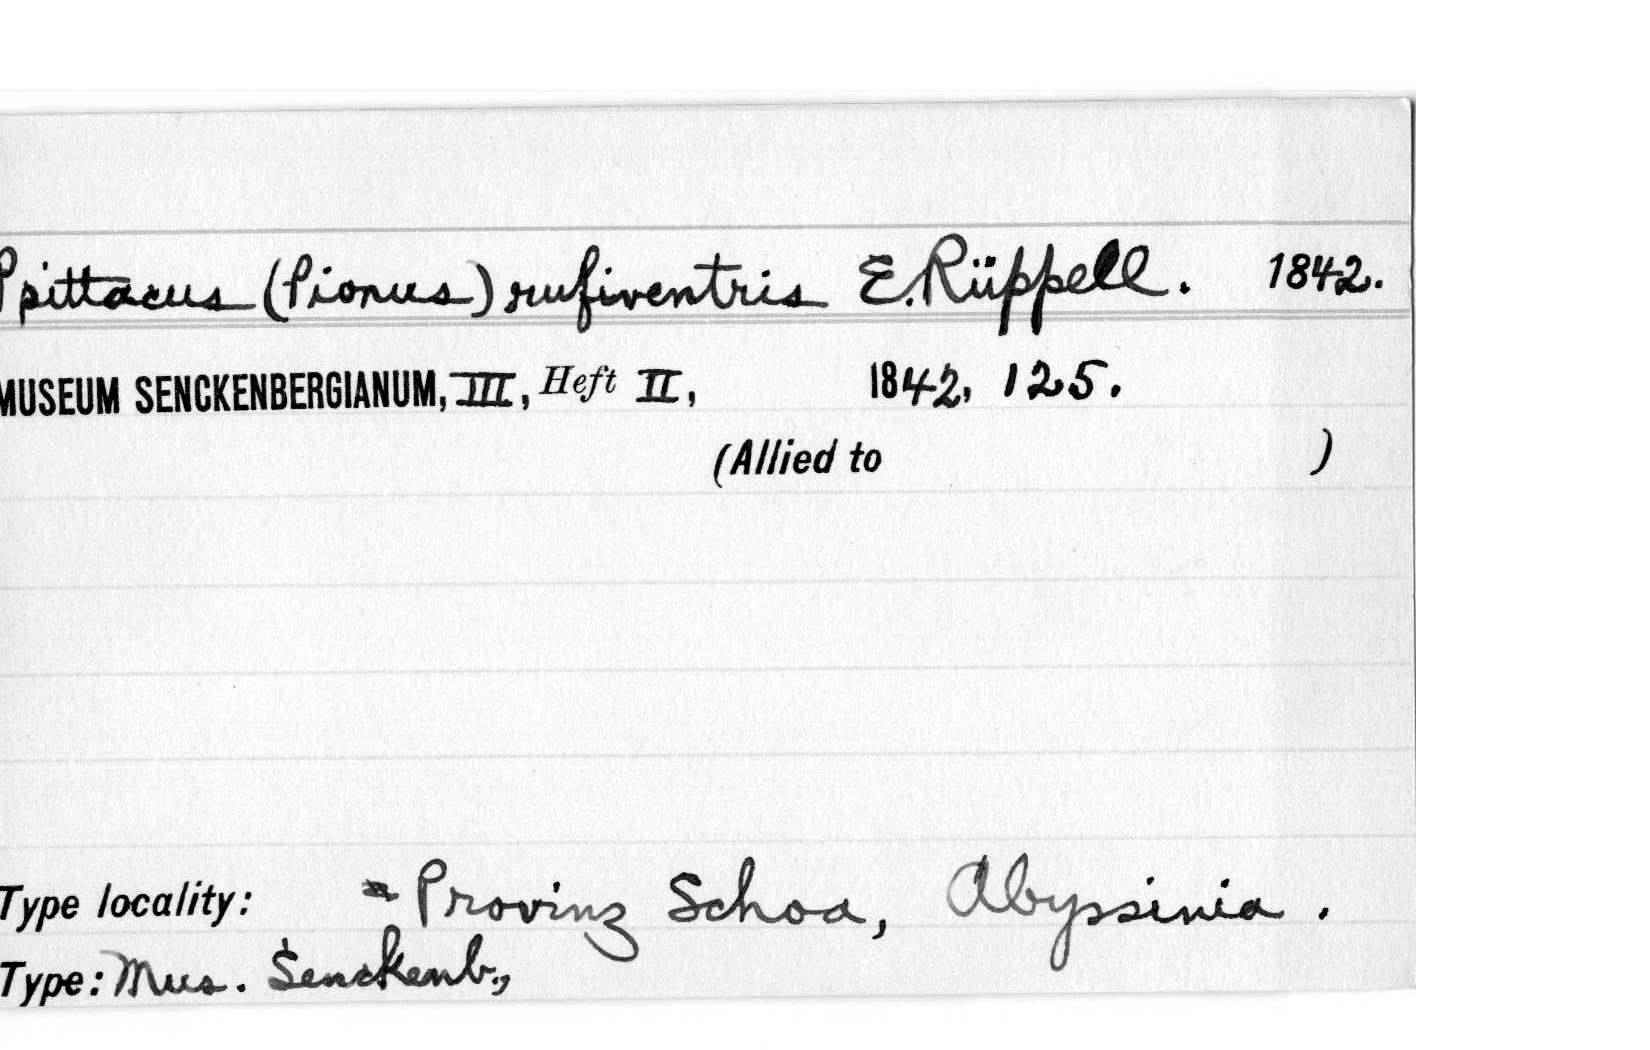 Psittacus (Pionus) rufiventris E. Rüppell. 1842.
MUSEUM SENCKENBERGIANUM, III, Heft II, 1842, 125.
(Allied to )
Type locality: = Provinz Schoa, Abyssinia.
Type: Mus. Senckenb.,